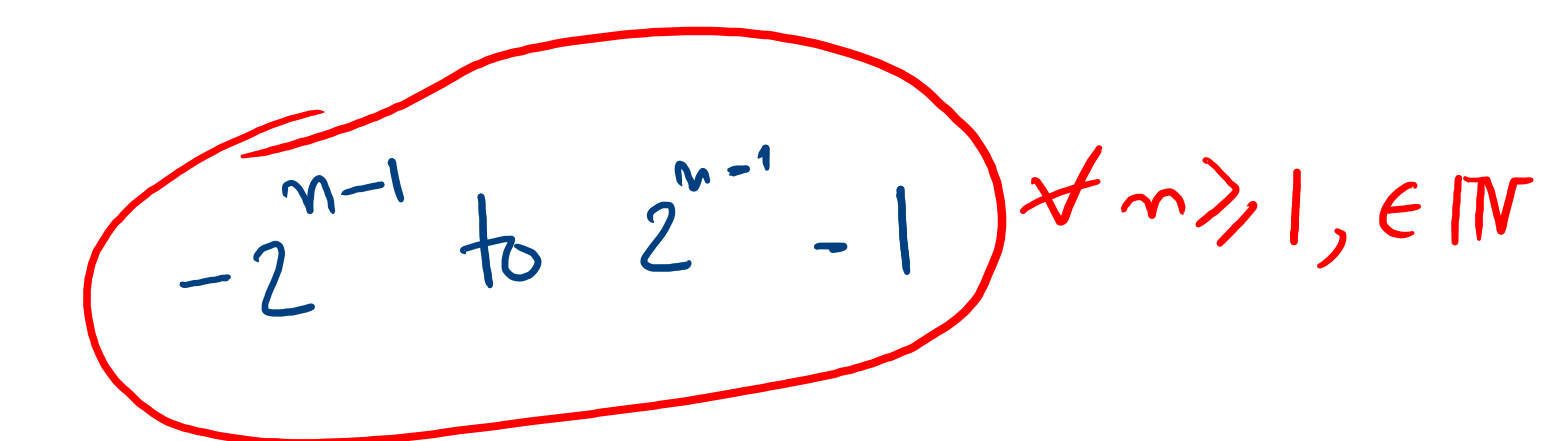 -2^{n-1} to 2^{n-1} - 1 ∀ n ⩾ 1, ∈ ℕ